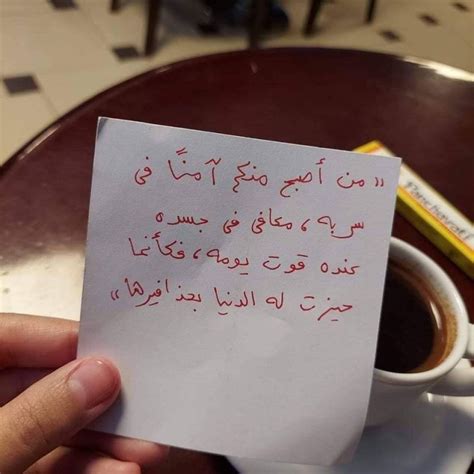 « من أصبح منكم آمنًا في
سربه، معافى في جسده
عنده قوت يومه، فكأنما
حيزت له الدنيا بحذافيرها»
Panchavati